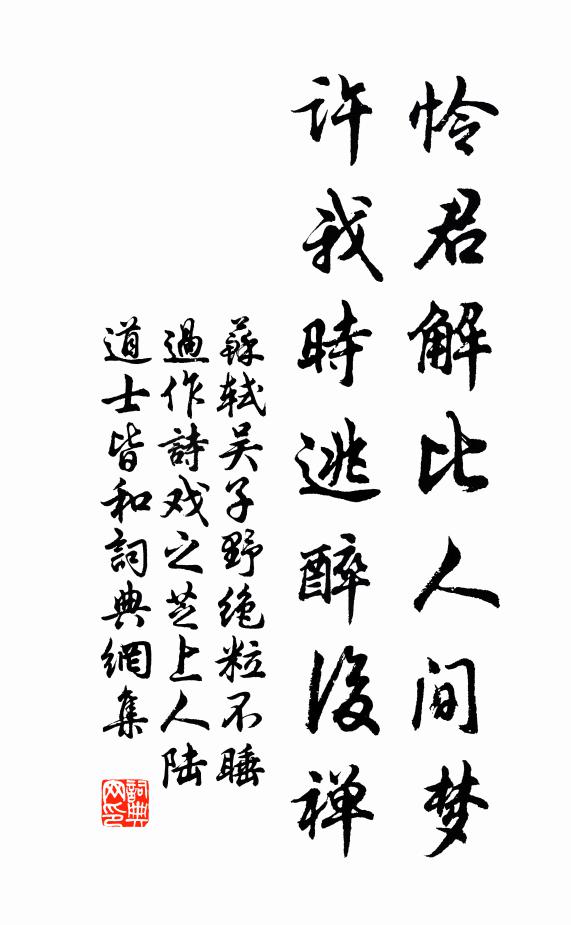 怜君解比人间梦
許我時逃醉後禅
蘇軾吴子野绝粒不睡
過作詩戏之芝上人陆
道士皆和詞典網集
詞典网印